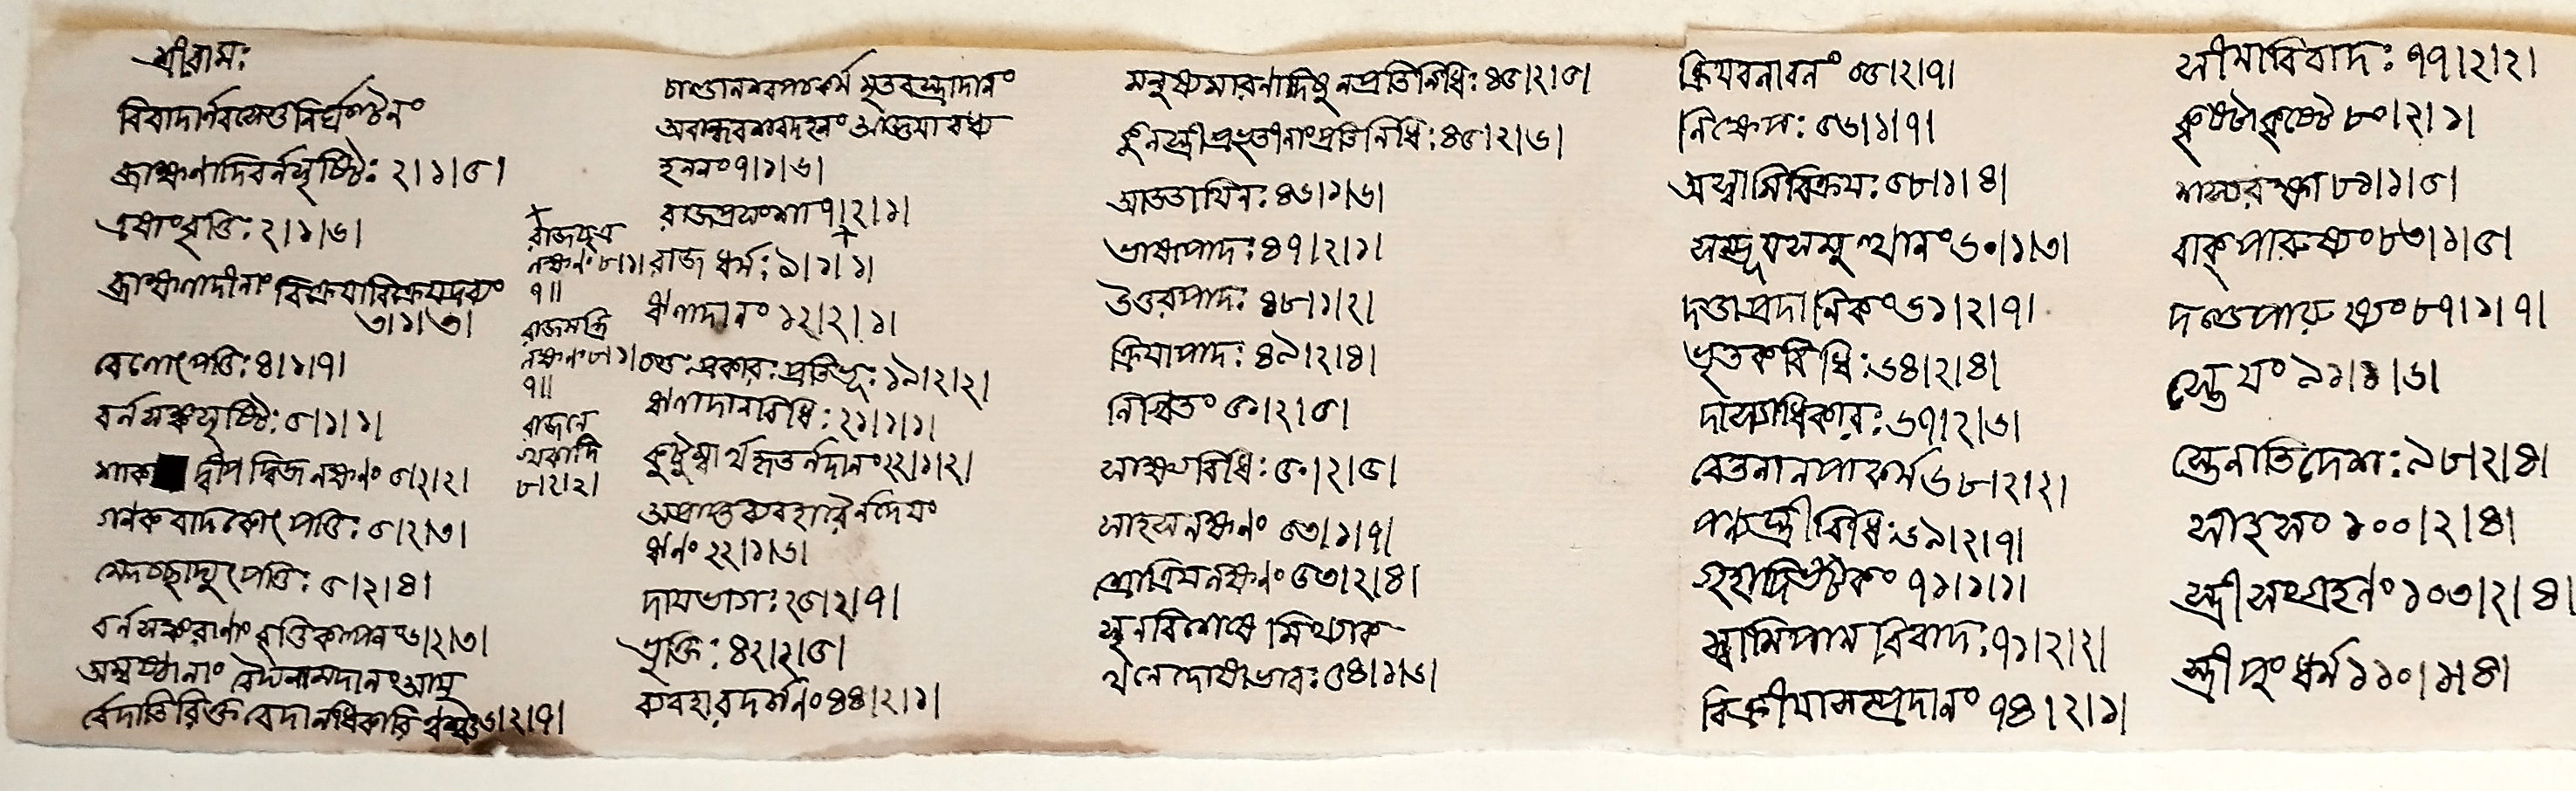 শ্রীরামঃ
বিবাদার্ণবসেতুনির্ঘণ্টনং
ব্রাহ্মণাদিবর্নসৃষ্টিঃ ২।১।৫।
এষাংবৃত্তিঃ ২।১।৬।
ব্রাহ্মণাদীনাং বিক্রয়াবিক্রয়দ্রব্যং
৩।১।৩।
বেণোৎপত্তিঃ ৪।১।৭।
বর্নসঙ্করসৃষ্টিঃ ৫।১।১।
শাক দ্বীপ দ্বিজ লক্ষনং ৫।২।২।
গনক বাদকোৎপত্তিঃ ৫।২।৩।
ম্লেচ্ছাদ্যুৎপত্তিঃ ৫।২।৪।
বর্নসঙ্করাণাং বৃত্তিকল্পনং ৬।২।৩।
অম্বষ্ঠানাং বৈদ্যনামদানং আয়ু
র্বেদাতিরিক্ত বেদানধিকারি ৬।২।৭।
রাজপুত্র
লক্ষনং ৮।১।
৭॥
রাজমন্ত্রি
লক্ষনং ৮।১।
৭॥
রাজলে
খকাদি
৮।২।২।
চাণ্ডালশবপচকর্ম মৃতবস্ত্রাদানং
অবান্ধবশবদহনং আজ্ঞয়া বধ্য
হননং ৭।১।৬।
রাজপ্রসংশা ৭।২।১।
রাজ ধর্মঃ ৯।১।১।
ঋণাদানং ১২।২।১।
প্রকারঃ প্রতিভূঃ ১৯।২।২।
ঋণাদানবিধিঃ ২১।১।১।
কুটুম্বার্থহৃতর্নদানং ২২।১।২।
অপ্রাপ্তব্যবহারৈর্নদেয়ং
ঋনং ২২।১।৬।
দায়ভাগঃ ২৫।২।৭।
যুক্তিঃ ৪২।২।৫।
ব্যবহারদর্শনং ৪৪।২।১।
মনুষ্যমারনাদিষুনপ্রতিনিধিঃ ৪৫।২।৫।
কুলস্ত্রীপ্রভৃতীনাংপ্রতিনিধিঃ ৪৫।২।৬।
আততায়িনঃ ৪৬।১।৬।
ভাষাপাদঃ ৪৭।২।১।
উত্তরপাদঃ ৪৮।১।২।
ক্রিয়াপাদঃ ৪৯।২।৪।
নিশ্চিতং ৫১।২।৫।
সাক্ষ্যবিধিঃ ৫০।২।৫।
সাহসলক্ষনং ৫৩।১।৭।
শ্রোত্রিয়লক্ষনং ৫৩।২।৪।
স্থলবিশেষে মিথ্যাক
থনেদোষাভাবঃ ৫৪।১।৬।
নিক্ষেপঃ ৫৬।১।৭।
অস্বামিবিক্রয়ঃ ৫৮।১।৪।
সম্ভূয়সমুত্থানং ৬০।১।৩।
দত্তাপ্রদানিকং ৬১।২।৭।
ভৃতকবিধিঃ ৬৪।২।৪।
দাস্যাধিকারঃ ৬৭।২।৬।
বেতনানপাকর্ম ৬৮।২।২।
পন্যস্ত্রীবিধিঃ ৬৯।২।৭।
গৃহাদিভাটকং ৭১।১।১।
স্বামিপাল বিবাদঃ ৭১।২।২।
বিক্রীয়াসম্প্রদানং ৭৪।২।১।
সীমাবিবাদঃ ৭৭।২।২।
কৃষ্টাকৃষ্টে ৮০।২।১।
শস্যরক্ষা ৮১।১।৫।
বাক্‌পারুষ্যং ৮৩।১।৫।
দণ্ডপারুষ্যং ৮৭।১।৭।
স্তেয়ং ৯১।১।৬।
স্তেনাতিদেশঃ ৯৮।২।৪।
সাহসং ১০০।২।৪।
স্ত্রীসংগ্রহনং ১০৩।২।৪।
স্ত্রীপুং ধর্ম ১১০।১।৪।